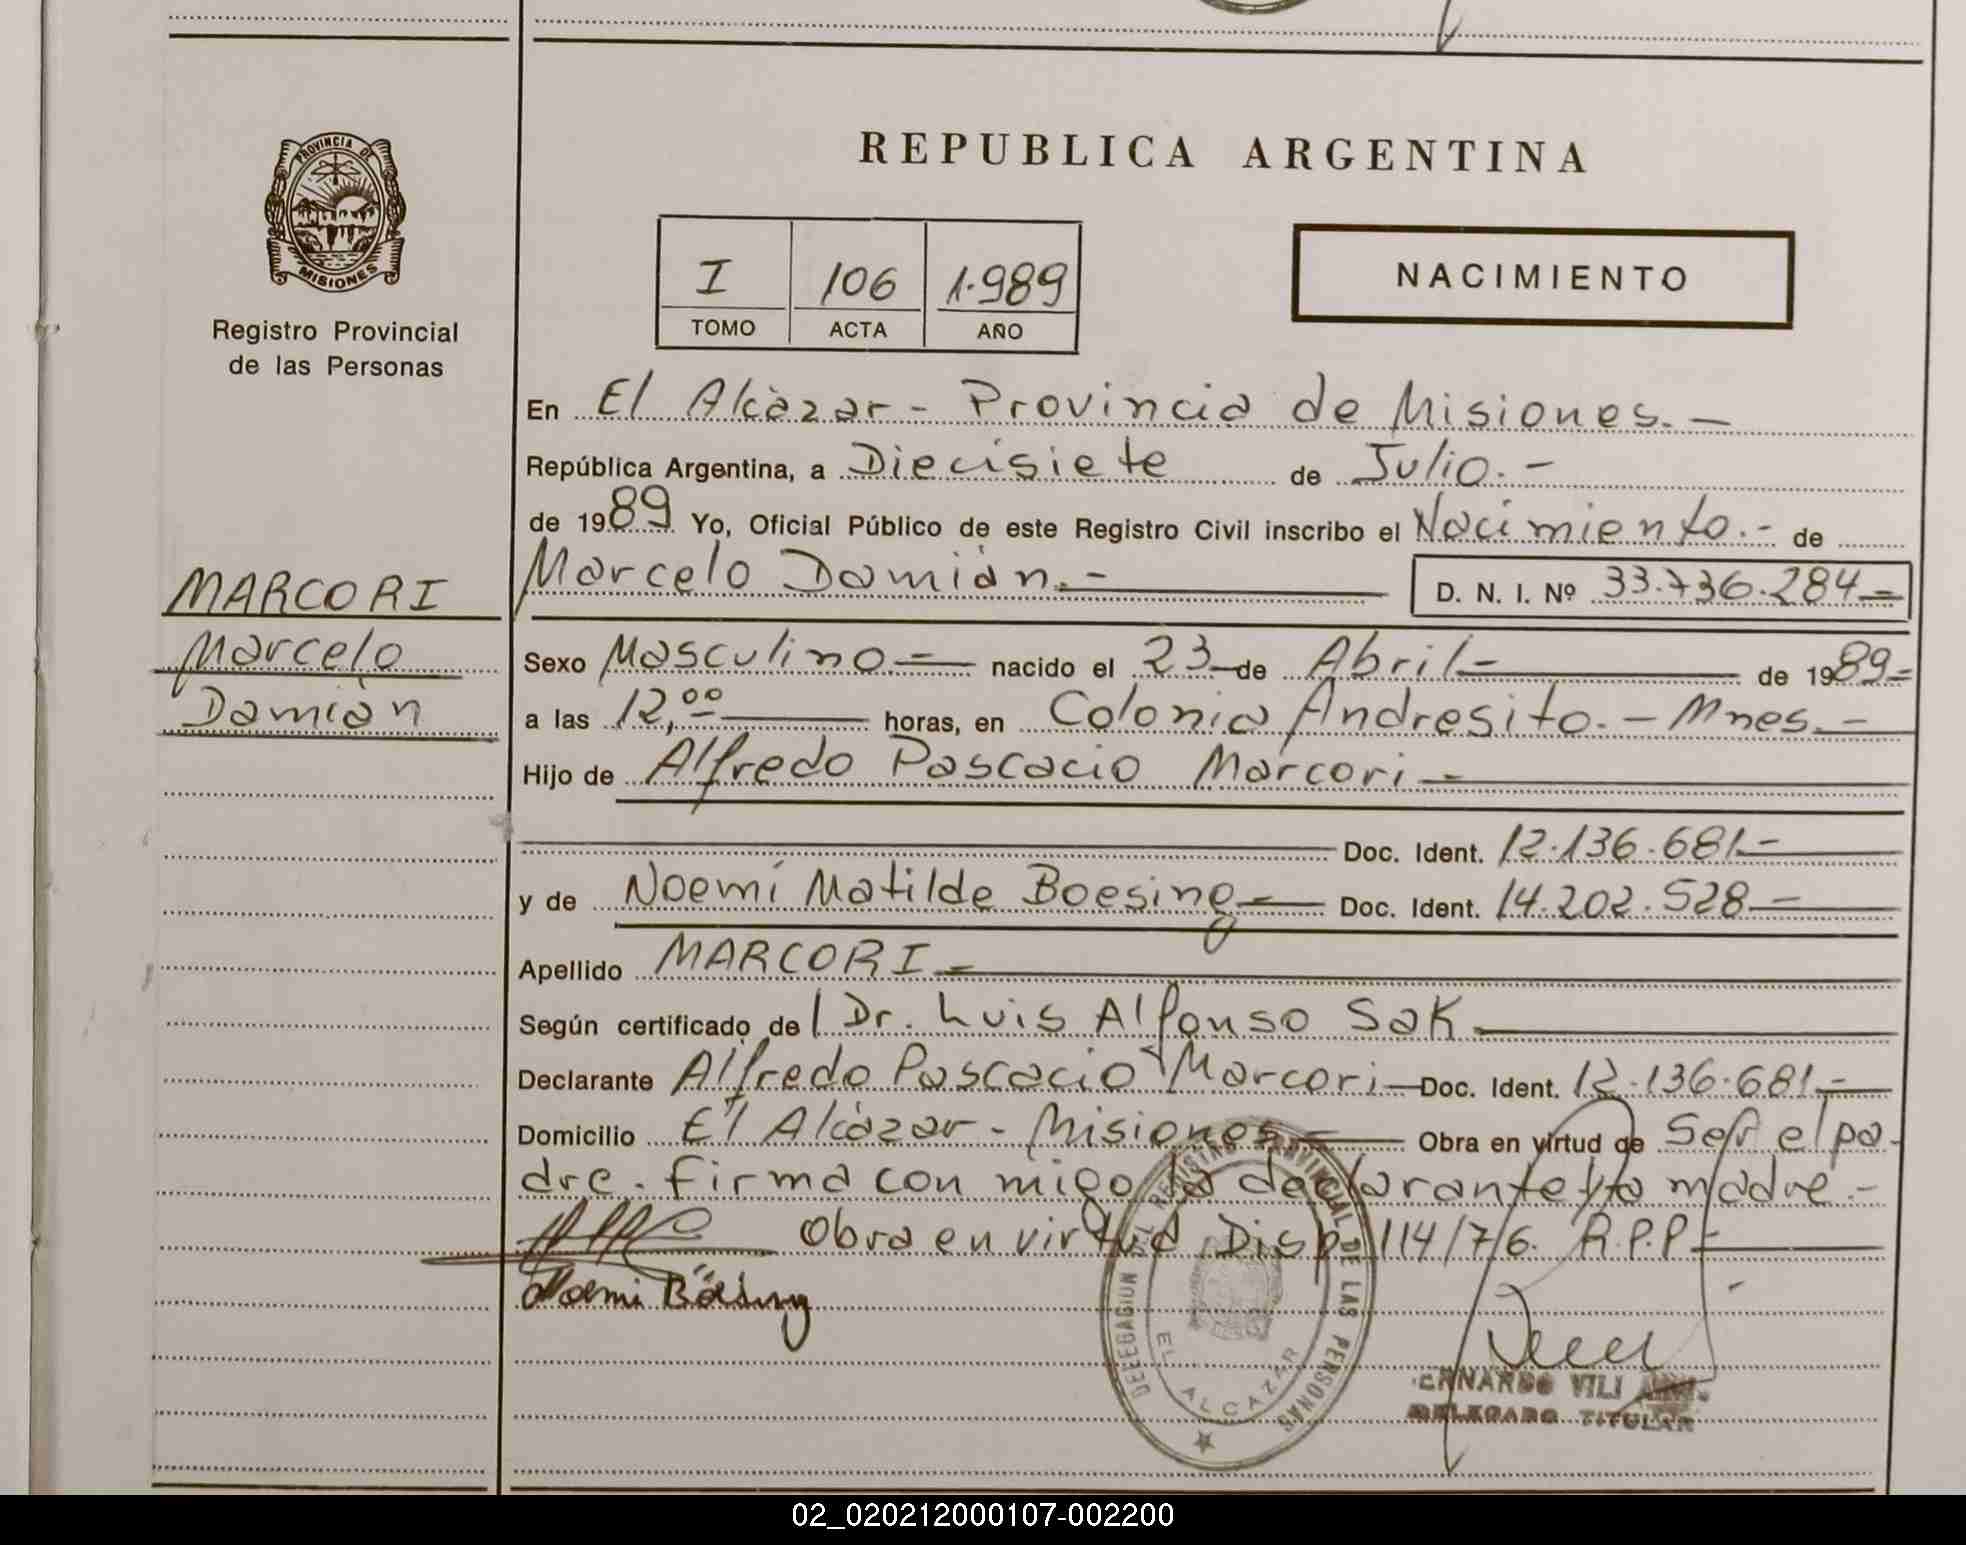 PROVINCIA DE
MISIONES
Registro Provincial
de las Personas
REPUBLICA ARGENTINA
I 106 1.989
TOMO ACTA AÑO
NACIMIENTO
En El Alcàzar - Provincia de Misiones. -
República Argentina, a Diecisiete de Julio. -
de 1989 Yo, Oficial Público de este Registro Civil inscribo el Nacimiento. - de
MARCORI
Marcelo Damián. - D. N. I. Nº 33.736.284 -
Marcelo
Sexo Masculino - nacido el 23 de Abril - de 1989 -
Damián
a las 12,00 horas, en Colonia Andresito. - Mnes. -
Hijo de Alfredo Pascacio Marcori -
Doc. Ident. 12.136.681. -
y de Noemí Matilde Boesing - Doc. Ident. 14.202.528 -
Apellido MARCORI -
Según certificado de Dr. Luis Alfonso Sak
Declarante Alfredo Pascacio Marcori - Doc. Ident. 12.136.681. -
Domicilio El Alcàzar - Misiones - Obra en virtud de Ser el pa-
dre. firma con migo la declarante y la madre. -
Obra en virtud Disp. 114/76. R.P.P -
Noemi Bőesing
DELEGACION DEL REGISTRO PROVINCIAL DE LAS PERSONAS
EL ALCAZAR
DELEGADO TITULAR
02_020212000107-002200